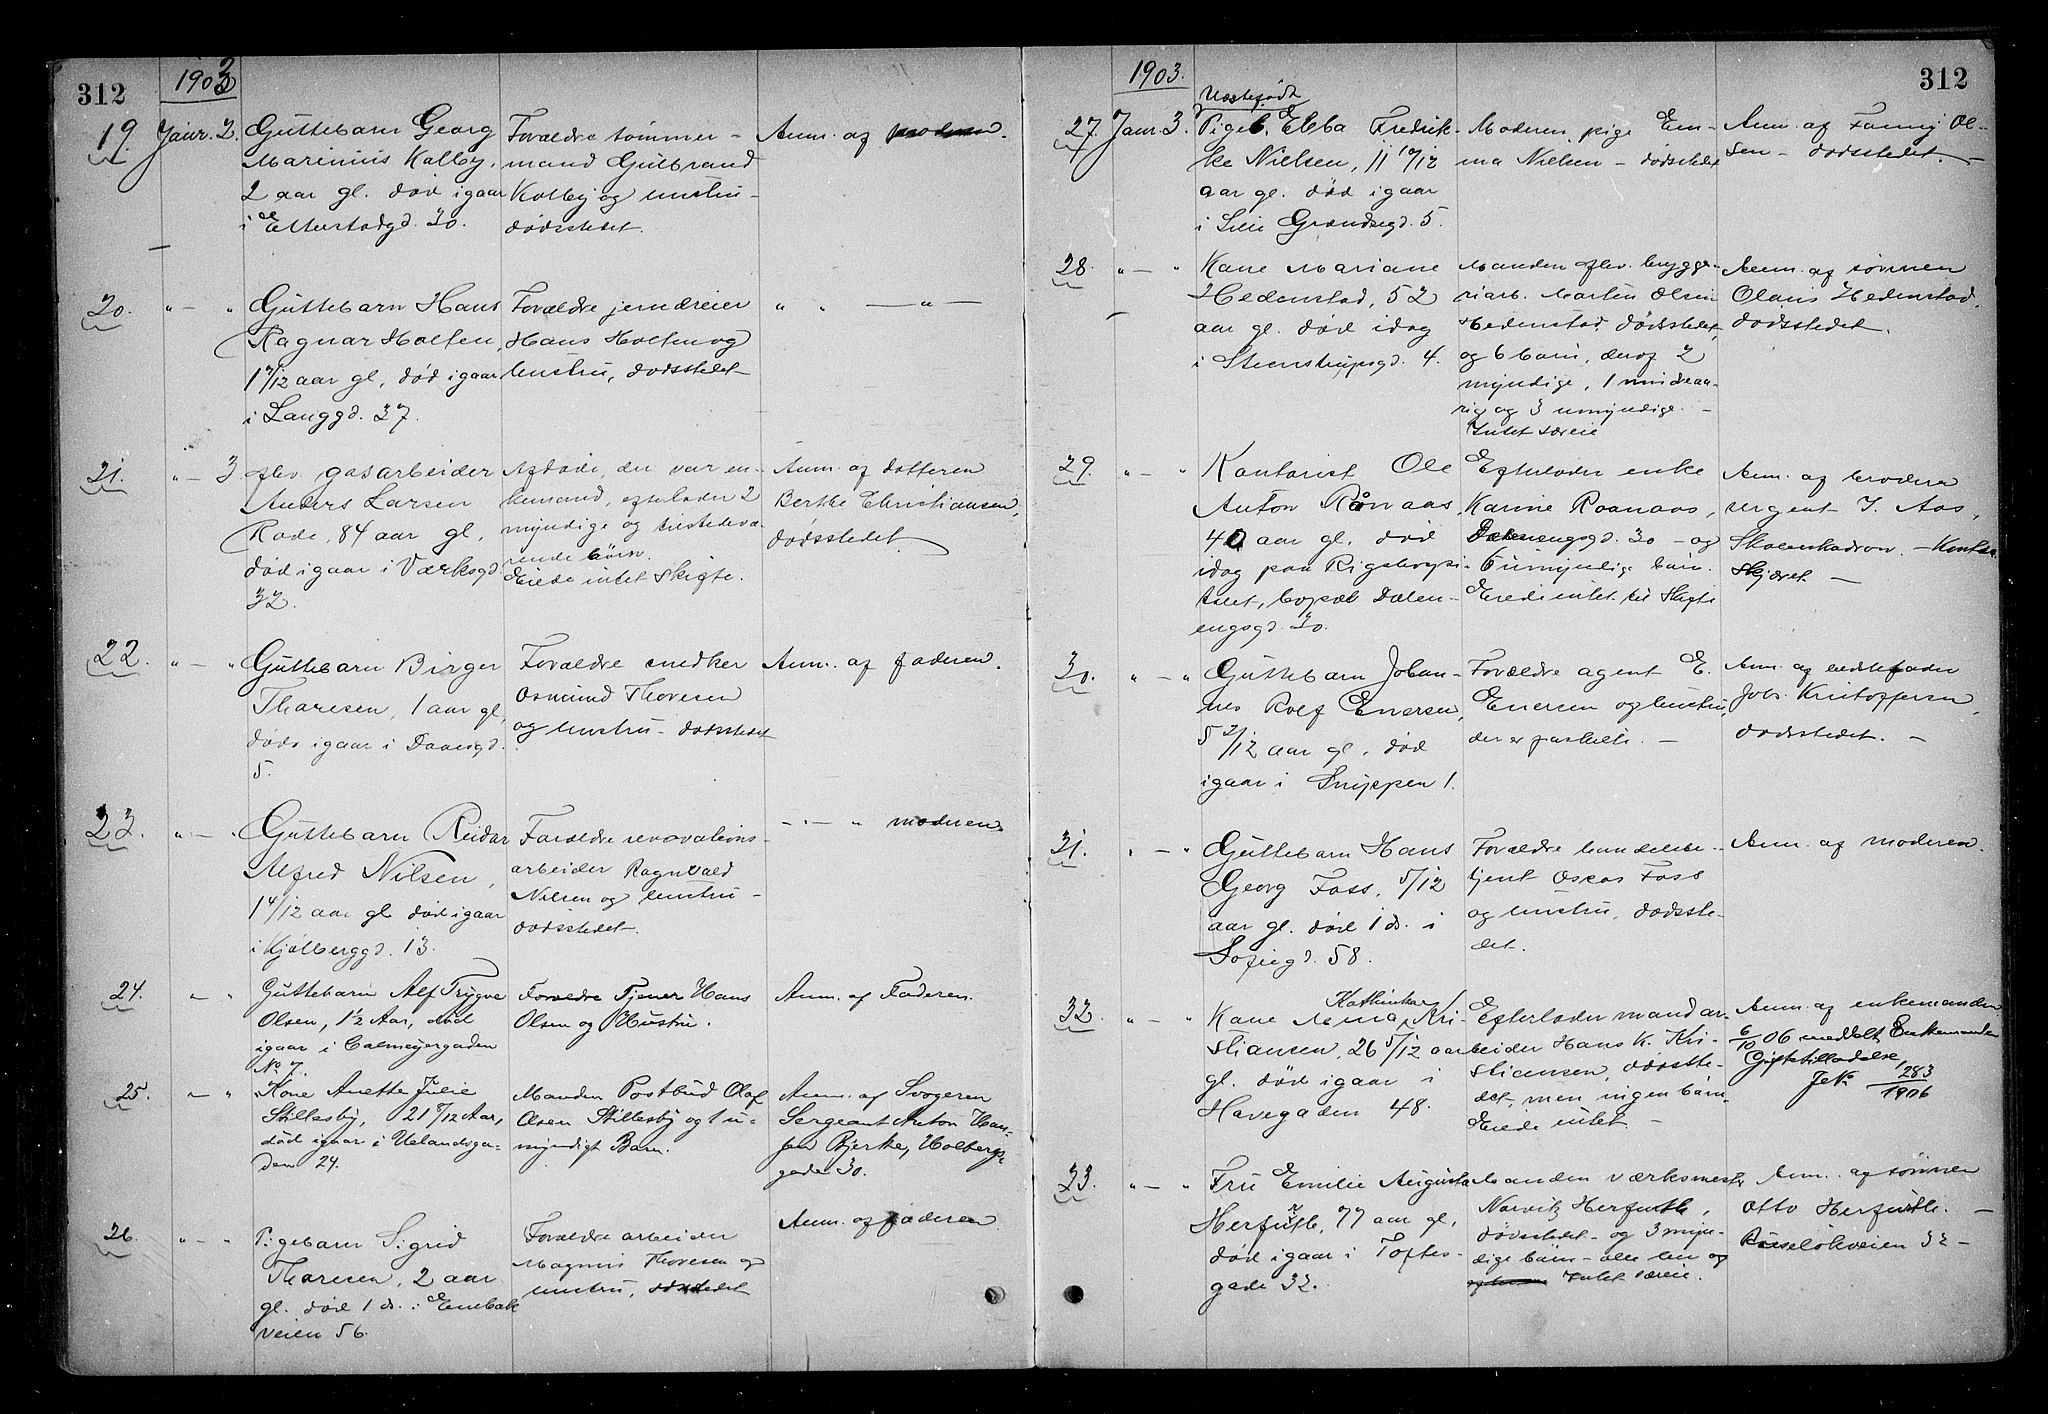 312
1903
19. Janr. 2. Guttebarn Georg
Marinius Kolby,
2 aar gl. død igaar
i Etterstadgd. 30.
Forældre tømmer-
mand Gulbrand
Kolby og hustru -
dødsstedet.
Anm. af moderen.
20. " — " Guttebarn Hans
Ragnar Holten,
1 7/12 aar gl, død igaar
i Langgd. 37.
Forældre jerndreier
Hans Holten og
hustru, dødsstedet
" " — " —
21. " — 3 Aflev gasarbeider
Anders Larsen
Rode, 84 aar gl,
død igaar i Værksgd.
32.
Afdøde, der var en-
kemand, efterlader 2
myndige og tilstedevæ-
rende børn.
Eiede intet skifte.
Anm. af datteren
Berthe Christiansen,
dødsstedet
22. " — " Guttebarn Birger
Thoresen, 1 aar gl,
døde igaar i Daaesgd.
5.
Forældre snedker
Osmund Thoresen
og hustru - dødsstedet
Anm. af faderen.
23. " — " Guttebarn Reidar
Alfred Nilsen,
1 4/12 aar gl død igaar
i Kjølberggd. 13.
Forældre renovations-
arbeider Ragnvald
Nilsen og hustru -
dødsstedet.
- · — " moderen.
24. " — " Guttebarn Alf Trygve
Olsen, 1½ Aar, død
igaar i Calmeyergaden
No 7.
Forældre Tjener Hans
Olsen og Hustru.
Anm. af Faderen.
25. " — " Kone Anette Julie
Stillesby, 21 8/12 Aar,
død igaar i Uelandsga-
den 24.
Manden Postbud Olaf
Olsen Stillesby og 1 u-
myndigt Barn.
Anm. af Svogeren
Sergeant Anton Han-
sen Bjerke, Holbergs-
gade 30.
26. " — " Pigebarn Sigrid
Thoresen, 2 aar
gl. død 1 ds. i Enebak
veien 56.
Forældre arbeider
Magnus Thoresen og
hustru, dødsstedet
Anm. af faderen
312
1903.
27. Janr. 3. Uægtefødt
Pigeb. Ebba Fredrik-
ke Nielsen, 11 10/12
aar gl. død igaar
i Lille Grændsegd. 5.
Moderen, pige Em-
ma Nielsen - dødsstedet
Anm. af Fanny Ol-
sen - dødsstedet. -
28. " — " Kone Mariane
Hedenstad, 52
aar gl. død idag
i Steenstrupsgd. 4.
Manden aflev. brygge-
riarb. Morten Olsen
Hedenstad, dødsstedet,
og 6 barn, deraf 2
myndige, 1 mindreaa-
rig og 3 umyndige. -
Intet særeie
Anm. af sønnen
Olaus Hedenstad,
dødsstedet.
29. " — " Kontorist Ole
Anton Rånaas,
40 aar gl. død
idag paa Rigshospi-
talet, bopæl Dælen-
engsgd. 30.
Efterlader enke
Karine Raanaas,
Dælenengsgd. 30 - og
6 umyndige barn.
Eiede intet til skifte
Anm. af broderen
sergent J. Aas,
- Kontra-
skjæret. -
30. " — " Guttebarn Johan-
nes Rolf Enersen,
5 2/12 aar gl. død
igaar i Snippen 1.
Forældre agent E.
Enersen og hustru,
der er fraskilt. -
Anm. af bedstefader
Johs. Kristoffersen,
dødsstedet. -
31. " — " Guttebarn Hans
Georg Foss, 5/12
aar gl. død 1 ds. i
Sofiegd. 58.
Forældre handelsbe-
tjent Oscar Foss
og hustru, dødsste-
det.
Anm. af moderen.
32. " — " Kathinka
Kone Mina, Kri-
stiansen, 26 5/12 aar
gl. død igaar i
Havegaden 48.
Efterlader mand ar-
beider Hans K. Kri-
stiansen, dødsste-
det, men ingen børn.
Eiede intet -
Anm. af enkemanden
6/10 06 meddelt Enkemanden
Giftetilladelse
J. No 283/1906
33. " — " Fru Emilie Augusta
Herfurth, 77 aar gl,
død igaar i Toftes-
gade 32.
Manden værksmester
Herfurth,
dødsstedet - og 3 myn-
dige børn - alle her og
Intet særeie.
Anm. af sønnen
Otto Herfurth. -
Ruseløkveien 32 -